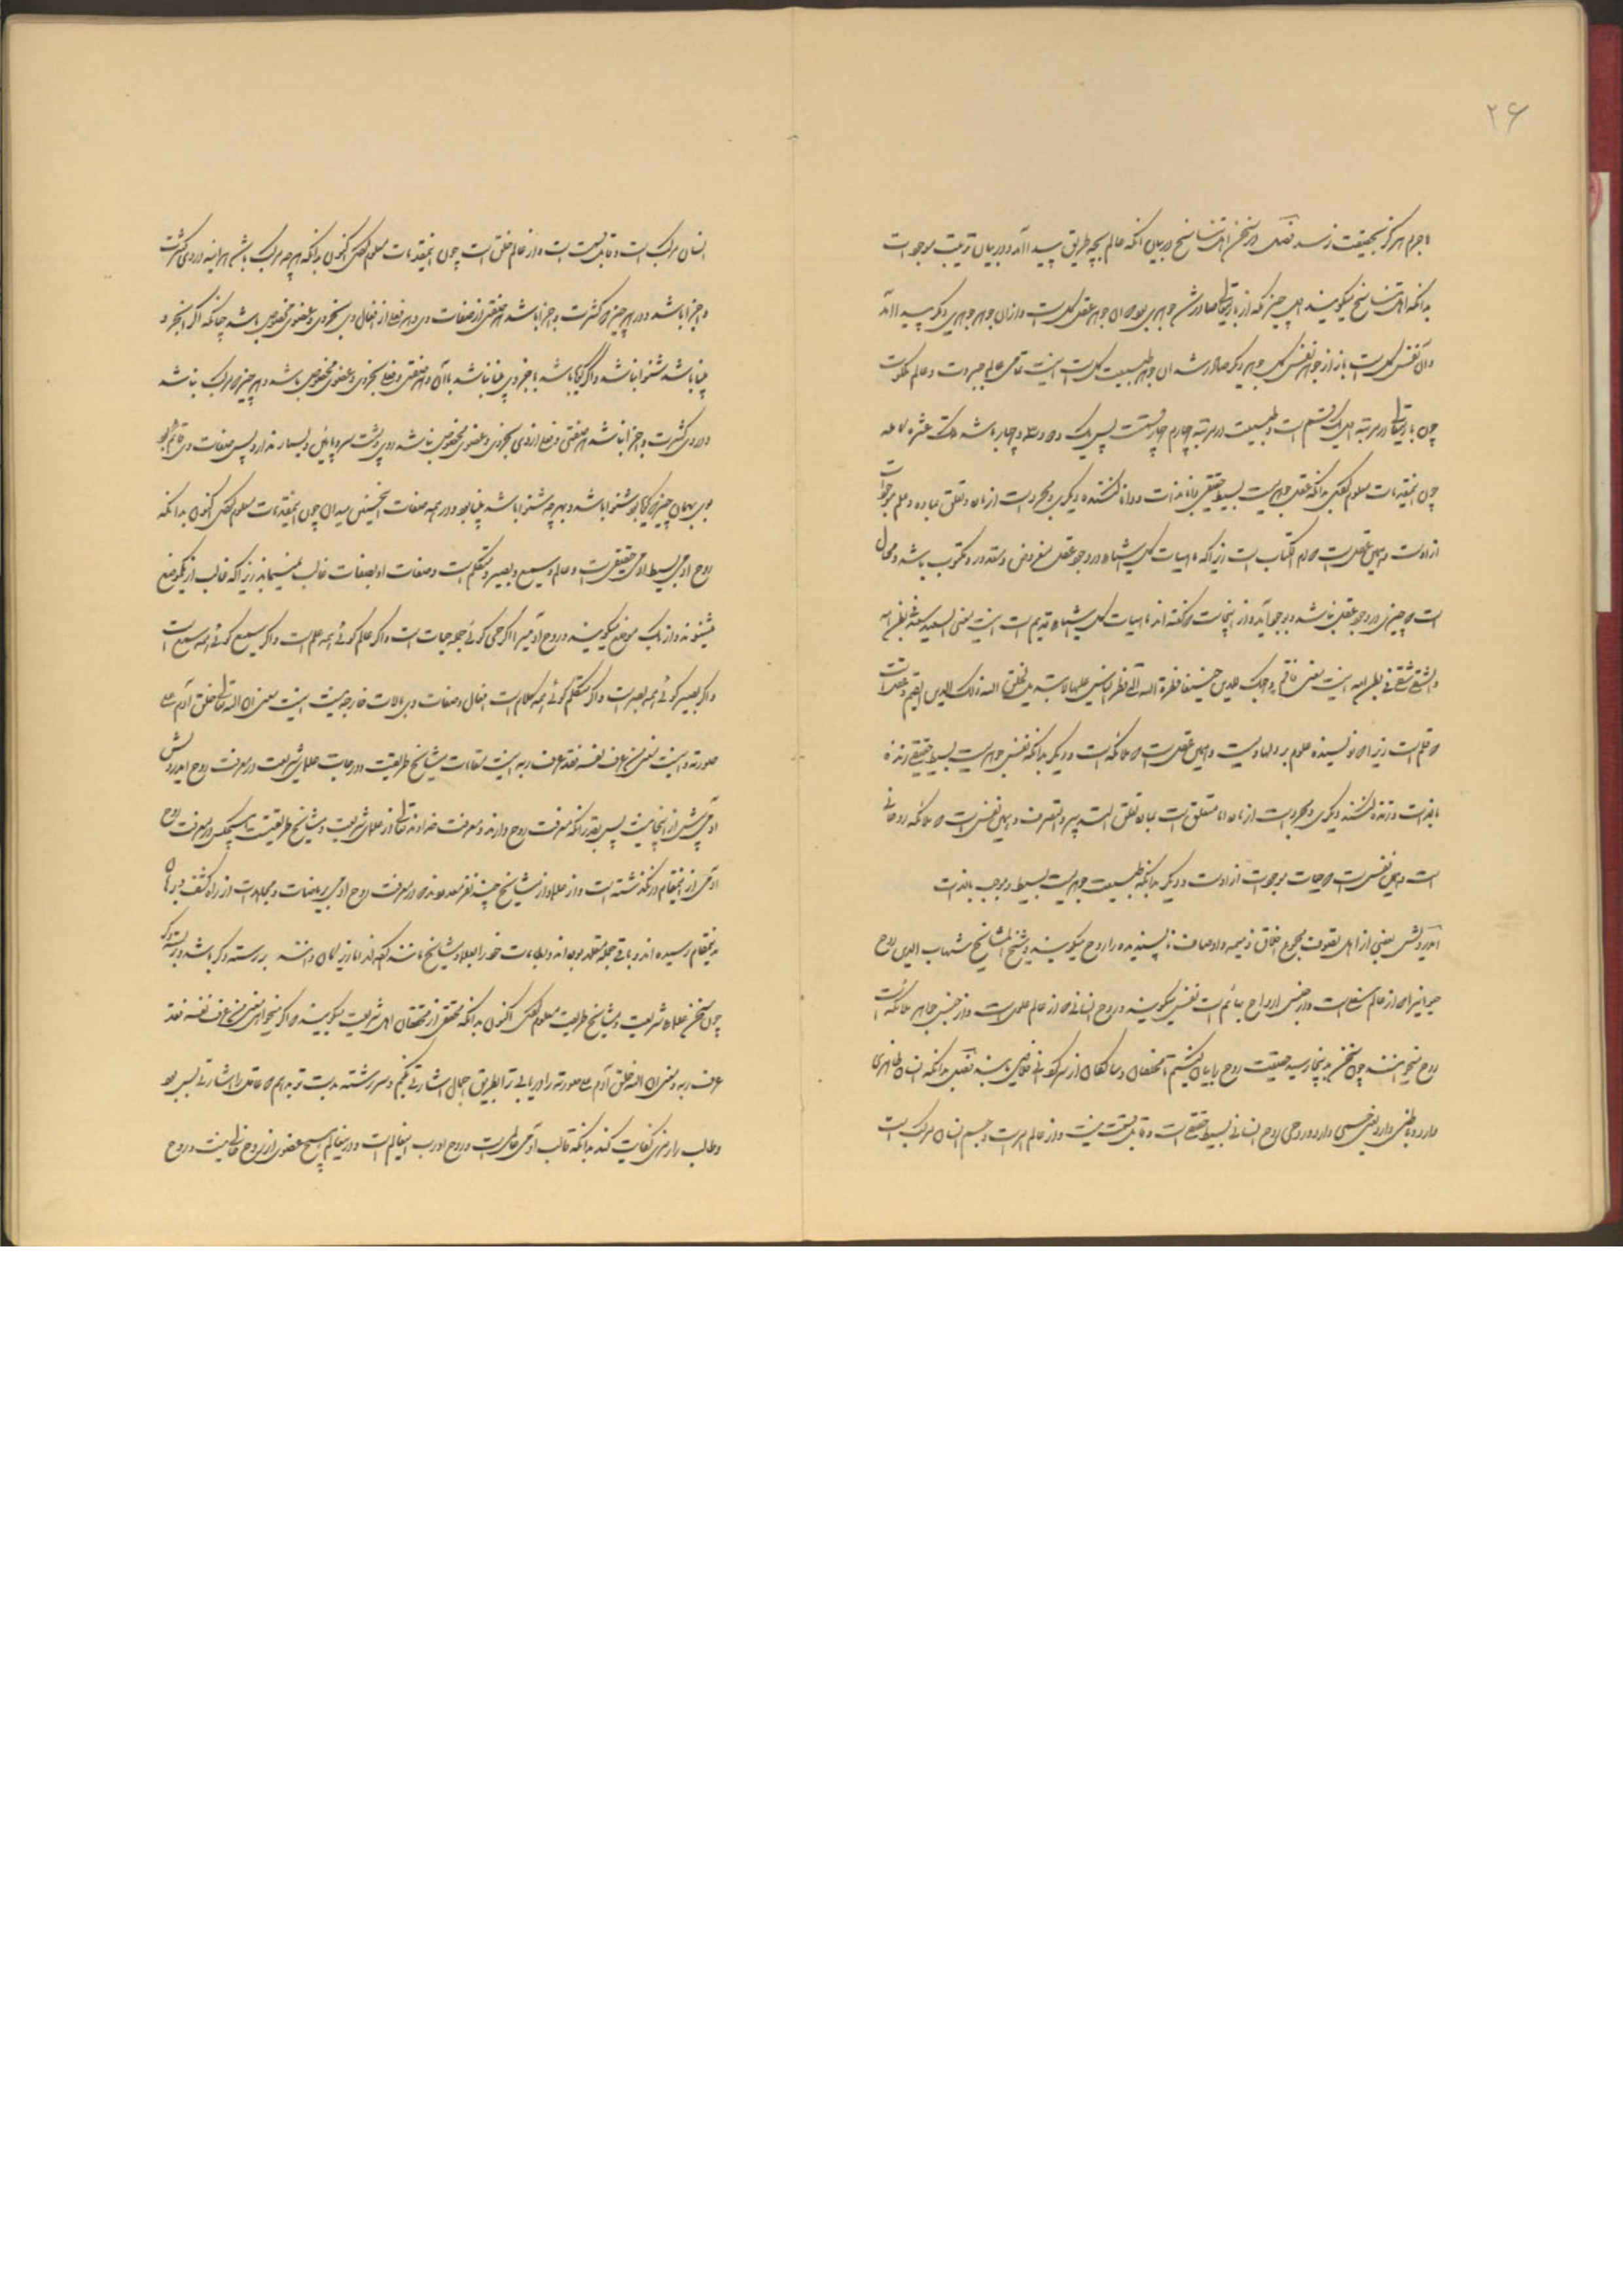 ۲۶
لاجرم هرگز بحقیقت نرسد فصل در سخن اهل تناسخ در بیان آنکه عالم بچه طریق پیدا آمد و در بیان ترتیب موجودات
بدانکه اهل تناسخ میگویند اول چیزی که از باریتعالی صادر شد جوهری بود و آن جوهر عقل کل است و از آن جوهر جوهری دیگر پیدا آمد
و آن نفس کل است باز از جوهر نفس کل جوهر دیگر صادر شد و آن جوهر طبیعت کل است اینست تمامی عالم جبروت و عالم ملکوت
چون باریتعالی در مرتبه اول یک قسم است و طبیعت در مرتبه چهارم چهار قسمت پس یک و دو و سه و چهار باشد تلک عشرة کامله
چون این مقدمات معلوم کردی بدانکه عقل جوهریست بسیط حقیقی دانا بذات و دانا کننده دیگری و مجرد است از زمان و تعلق بماده و علم موجودات
از اوست و همین عقل است که ام الکتاب است زیرا که ماهیات کل اشیاء در وجود عقل مفروض و مقدر و مکتوب باشد و محال
است که چیزی در وجود عقل نباشد و بوجود آید و از اینجاست که گفته اند ماهیات کل اشیاء قدیم است اینست معنی السعید سعید فی بطن امه
والشقی شقی فی بطن امه اینست معنی فاقم وجهک للدین حنیفا فطرة الله التی فطر الناس علیها لا تبدیل لخلق الله ذلک الدین القیم و عقل است
که قلم است زیرا که نویسنده علوم بر دلها ویست و همین عقل است که ملائکه است و دیگر بدانکه نفس جوهریست بسیط حقیقی زنده
بالذات و زنده کننده دیگری و مجرد است از زمان اما متعلق است بمکان تعلق التدبیر و التصرف و همین نفس است که ملائکه روحانی
است و همین نفس است که حیات موجودات از اوست و دیگر بدانکه طبیعت جوهریست بسیط و موجب بالذات
ایدرویش بعضی از اهل تصوف مجموع اخلاق ذمیمه و اوصاف ناپسندیده را روح میگویند و شیخ المشایخ شهاب الدین روح
حیوانی را که از عالم سفل است و از جنس ارواح بهائم است نفس میگویند و روح انسانی که از عالم علوی است و از جنس جواهر ملائکه است
روح میخوانند چون سخن بدینجا رسید حقیقت روح را بیان کنیم تا محققان و سالکان از سر کوبه نی خلاصی یابند فصل بدانکه انسان ظاهری
دارد و باطنی دارد یعنی جسمی دارد و روحی روح انسانی بسیط حقیقی است و قابل قسمت نیست و از عالم امر است و جسم انسان مرکب است
انسان مرکب است و قابل قسمت است و از عالم خلق است چون این مقدمات معلوم کردی اکنون بدانکه هر چه مرکب باشد هر آینه در وی کثرت
و اجزا باشد و در هر چیزی که کثرت و اجزا باشد هر صفتی از صفات وی و هر فعلی از افعال وی بجزوی و عضوی مخصوص باشد چنانکه اگر بجزو
بینا باشد شنوا نباشد و اگر گویا باشد با جزو وی بینا نباشد با آن و هر صفتی و فعلی بجزوی و عضوی مخصوص باشد و هر چیزی که مرکب نباشد
و در وی کثرت و اجزا نباشد هر صفتی و فعلی از وی بجزوی و عضوی مخصوص نباشد و وی پشت و سر و پا و یمین و یسار ندارد پس صفات وی قائم بود
بوی بهمان چیزی که گویا بود شنوا باشد و بهرچه شنوا باشد بینا بود و در همه صفات اینچنین میدان چون این مقدمات معلوم کردی اکنون بدانکه
روح آدمی بسیط آدمی حقیقی است و عالم و سمیع و بصیر و متکلم است و صفات او بصفات قالب نمیماند زیرا که قالب از یک موضع
میشنوند و از یک موضع میگویند و روح آدمی را اگر حی گوئی جمله حیات است و اگر علم گوئی همه علم است و اگر سمیع گوئی همه سمیع است
و اگر بصیر گوئی همه بصر است و اگر متکلم گوئی همه کلام است افعال و صفات وی بآلات خارجه نیست اینست معنی ان الله تعالی خلق آدم علی
صورته و اینست معنی من عرف نفسه فقد عرف ربه اینست مقامات مشایخ طریقت و درجات علمای شریعت در معرفت روح ایدرویش
ترقی بیش از اینجا نیست پس بقدر آنکه معرفت روح دارند و معرفت خداوند تعالی از علمای شریعت و مشایخ طریقت هیچکس در معرفت روح
آدمی از اینمقام درنگذشته است و از علما و از مشایخ چند نفر معدود بوده اند در معرفت روح آدمی بریاضات و مجاهدات از راه کشف و عیان
بدینمقام رسیده اند و باقی جمله مقلد بوده اند و طامات خود را بعلما و مشایخ مانند کرده اند اما زیرکان دانند بر رسته دگر باشد و بر بسته دگر
چون سخن علماء شریعت و مشایخ طریقت معلوم کردی اکنون بدانکه محققی از محققان اهل شریعت میگویند که اگر میخواهی معنی من عرف نفسه فقد
عرف ربه و معنی ان الله خلق آدم علی صورته را دریابی ترا بطریق اجمال اشارتی بکنم و سر رشته بدست تو بدهم که عاقل را اشارتی بس بود
و طالب را رمزی کفایت کند بدانکه قالب آدمی عالمی است و روح او رب اینعالم است و در اینعالم هیچ عضوی از روح خالی نیست و روح